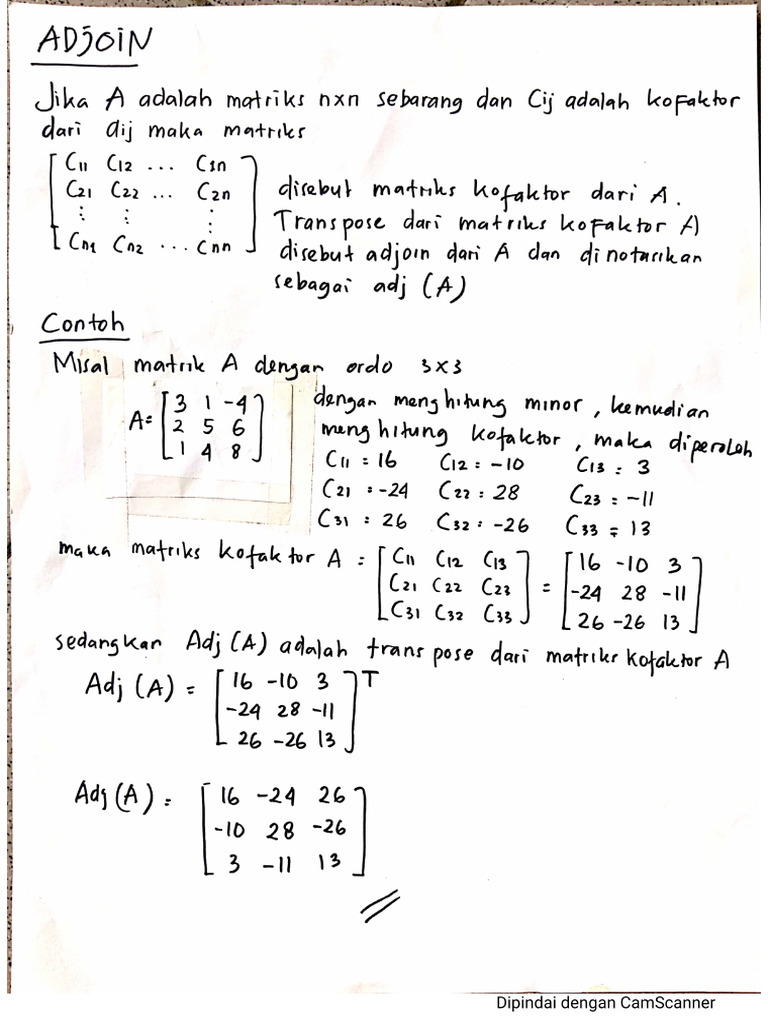 ADJOIN
Jika A adalah matriks nxn sebarang dan Cij adalah kofaktor
dari aij maka matriks
[C11 C12 ... C1n
C21 C22 ... C2n
⋮ ⋮ ⋮
Cn1 Cn2 ... Cnn]
disebut matriks kofaktor dari A.
Transpose dari matriks kofaktor A
disebut adjoin dari A dan dinotasikan
sebagai adj (A)
Contoh
Misal matrik A dengan ordo 3x3
A= [3 1 -4
2 5 6
1 4 8]
dengan menghitung minor, kemudian
menghitung kofaktor, maka diperoleh
C11 = 16 C12 = -10 C13 = 3
C21 = -24 C22 = 28 C23 = -11
C31 = 26 C32 = -26 C33 = 13
maka matriks kofaktor A = [C11 C12 C13
C21 C22 C23
C31 C32 C33]
= [16 -10 3
-24 28 -11
26 -26 13]
sedangkan Adj (A) adalah transpose dari matriks kofaktor A
Adj (A) = [16 -10 3
-24 28 -11
26 -26 13]T
Adj (A) = [16 -24 26
-10 28 -26
3 -11 13]
Dipindai dengan CamScanner